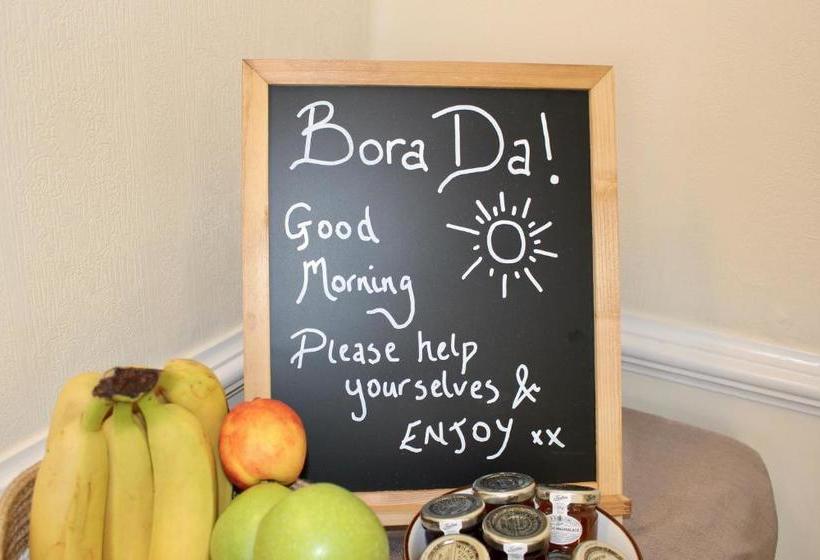 Bora Da!
Good
Morning
Please help
yourselves &
ENJOY xx